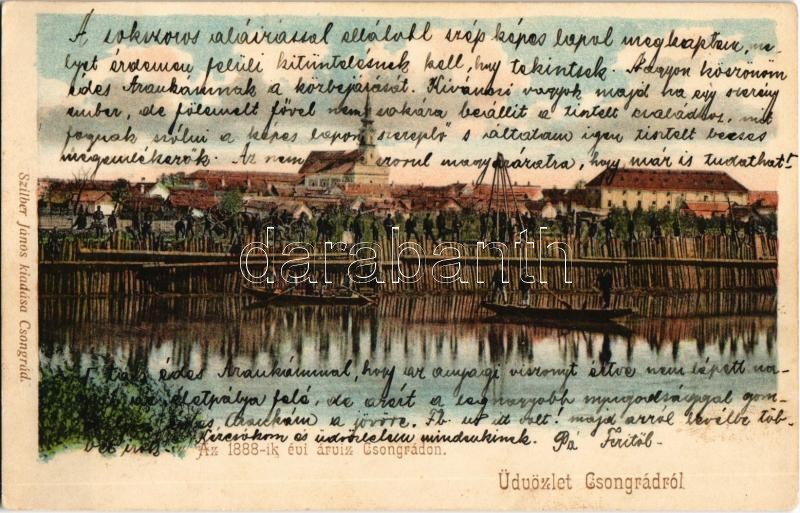 A sokszoros aláirással ellátott szép képes lapot megkaptam, me-
lyet érdemen felüli kitüntetésnek kell, hogy tekintsek. Nagyon köszönöm
édes Arankámnak a közbejárását. Kíváncsi vagyok majd ha egy szerény
ember, de fölemelt fővel nem sokára beállit a tisztelt családhoz, mit
fognak szólni a képes lapon szereplő s általatam igen tisztelt becses
megemlékezők. Az nem szorul magyarázatra, hogy már is tudathat!
Szilber János kiadása Csongrád.
darabanth.com
édes Arankámmal, hogy az anyagi viszonyt éltve nem lépett na-
életpálya felé, de azért a legnagyobb nyugodtsággal gon-
Arankám a jövőre. Fb. ur itt volt! majd arról levélbe töb-
bet írok. Kézcsókom és üdvözletem mindenkinek. Pá Feritől-
Az 1888-ik évi árviz Csongrádon.
Üdvözlet Csongrádról